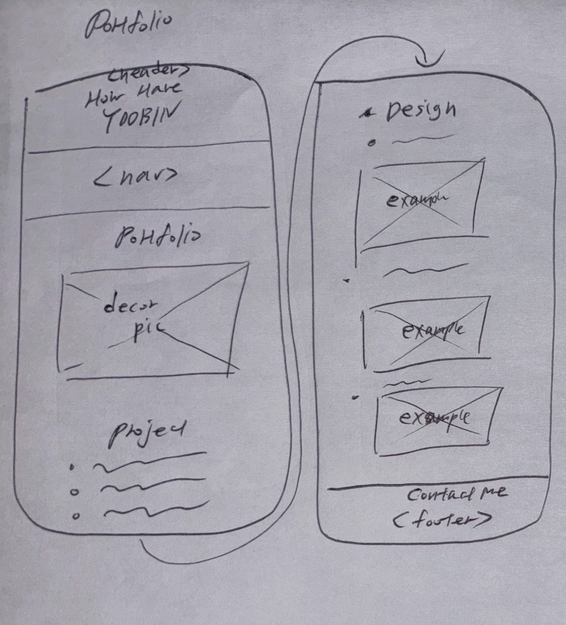 Portfolio
<header>
YOOBIN
<nav>
Portfolio
decor
pic
project
Design
example
example
example
Contact me
<footer>